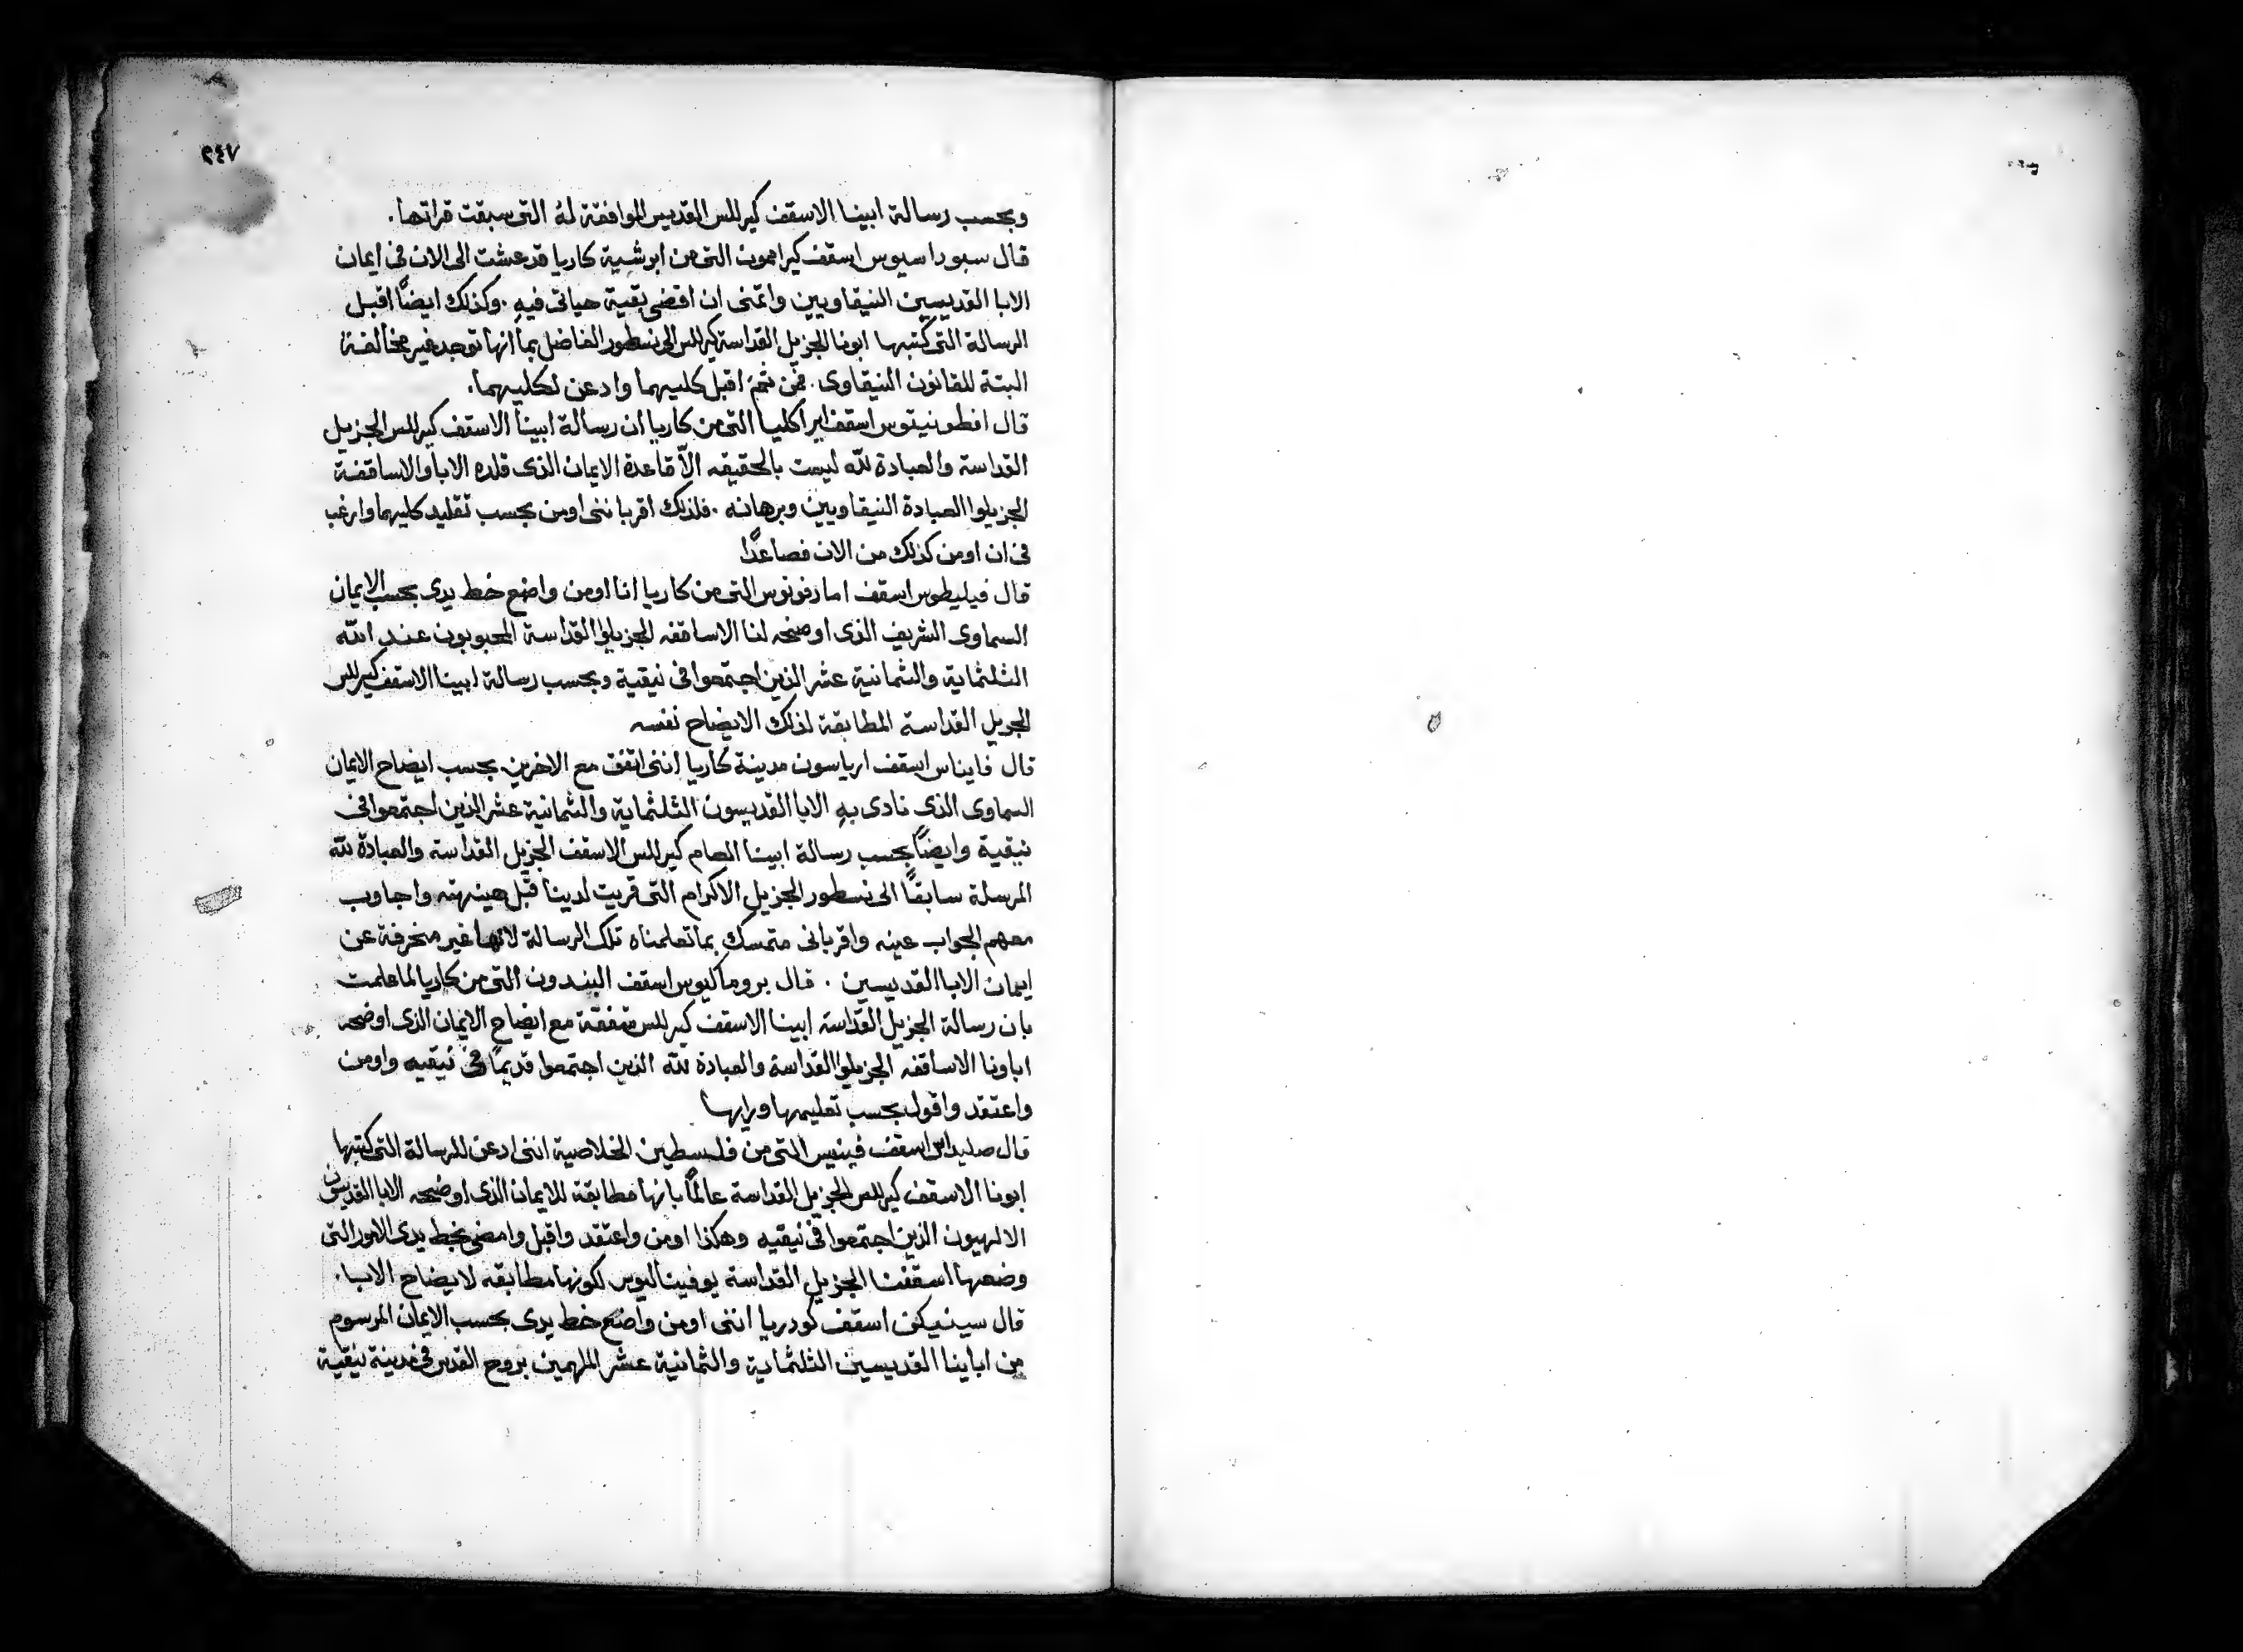 ٢٤٧
وبحسب رسالة ابينا الاسقف كيرللس القديس الموافقة له التى سبقت قراتها.
قال سبوداسيوس اسقف كيراممون التى من ابرشية كاريا قد عشت الى الان فى ايمان
الابا القديسين النيقاويين واتمنى ان اقضى بقية حياتى فيهِ. وكذلك ايضًا اقبل
الرسالة التى كتبها ابونا الجزيل القداسة كيرللس الى نسطور الفاضل بما انها توجد غير مخالفة
البتة للقانون النيقاوى. فمن ثمَّ اقبل كليهما وادعن لكليهما.
قال افطونيتوس اسقف ايراكليا التى من كاريا ان رسالة ابينا الاسقف كيرللس الجزيل
القداسة والعبادة لله ليست بالحقيقه الّا قاعدة الايمان الذى قلده الابا والاساقفة
الجزيلوا العبادة النيقاويين وبرهانه. فلذلك اقر باننى اومن بحسب تقليد كليهما وارغب
فى ان اومن كذلك من الان فصاعدًا
قال فيليطوس اسقف امازفونوس التى من كاريا انا اومن واضع خط يدى بحسب الايمان
السماوى الشريف الذى اوضحه لنا الاساقفه الجزيلوا القداسة المحبوبون عند الله
الثلثماية والثمانية عشر الذين اجتمعوا فى نيقية وبحسب رسالة ابينا الاسقف كيرللس
الجزيل القداسة المطابقة لذلك الايضاح نفسه
قال فايناس اسقف ارباسون مدينة كاريا اننى اتفق مع الاخرين بحسب ايضاح الايمان
السماوى الذى نادى بهِ الابا القديسون الثلثماية والثمانية عشر الذين اجتمعوا فى
نيقية وايضًا بحسب رسالة ابينا العام كيرللس الاسقف الجزيل القداسة والعبادة لله
المرسلة سابقًا الى نسطور الجزيل الاكرام التى قريت لدينا قبل هينهته واجاوب
معهم الجواب عينه واقر بانى متمسك بما تعلمناه تلك الرسالة لانها غير منحرفة عن
ايمان الابا القديسين. قال بروماكيوس اسقف البندون التى من كاريا لما علمت
بان رسالة الجزيل القداسة ابينا الاسقف كيرللس متفقة مع ايضاح الايمان الذى اوضحه
اباونا الاساقفه الجزيلوا القداسة والعبادة لله الذين اجتمعوا قديمًا فى نيقيه واومن
واعتقد واقول بحسب تعليمها ورايها
قال صليداس اسقف فينيس التى من فلسطين الخلاصية اننى ادعن للرسالة التى كتبها
ابونا الاسقف كيرللس الجزيل القداسة عالمًا بانها مطابقة للايمان الذى اوضحه الابا القديسون
الالهيون الذين اجتمعوا فى نيقيه وهكذا اومن واعتقد واقبل وامضى بخط يدى الامور التى
وضعها اسقفنا الجزيل القداسة يوفيناليوس لكونها مطابقه لايضاح الابا.
قال سينيكن اسقف كودريا اننى اومن واضع خط يدى بحسب الايمان المرسوم
من اباينا القديسين الثلثماية والثمانية عشر الملهمين بروح القدس فى مدينة نيقية